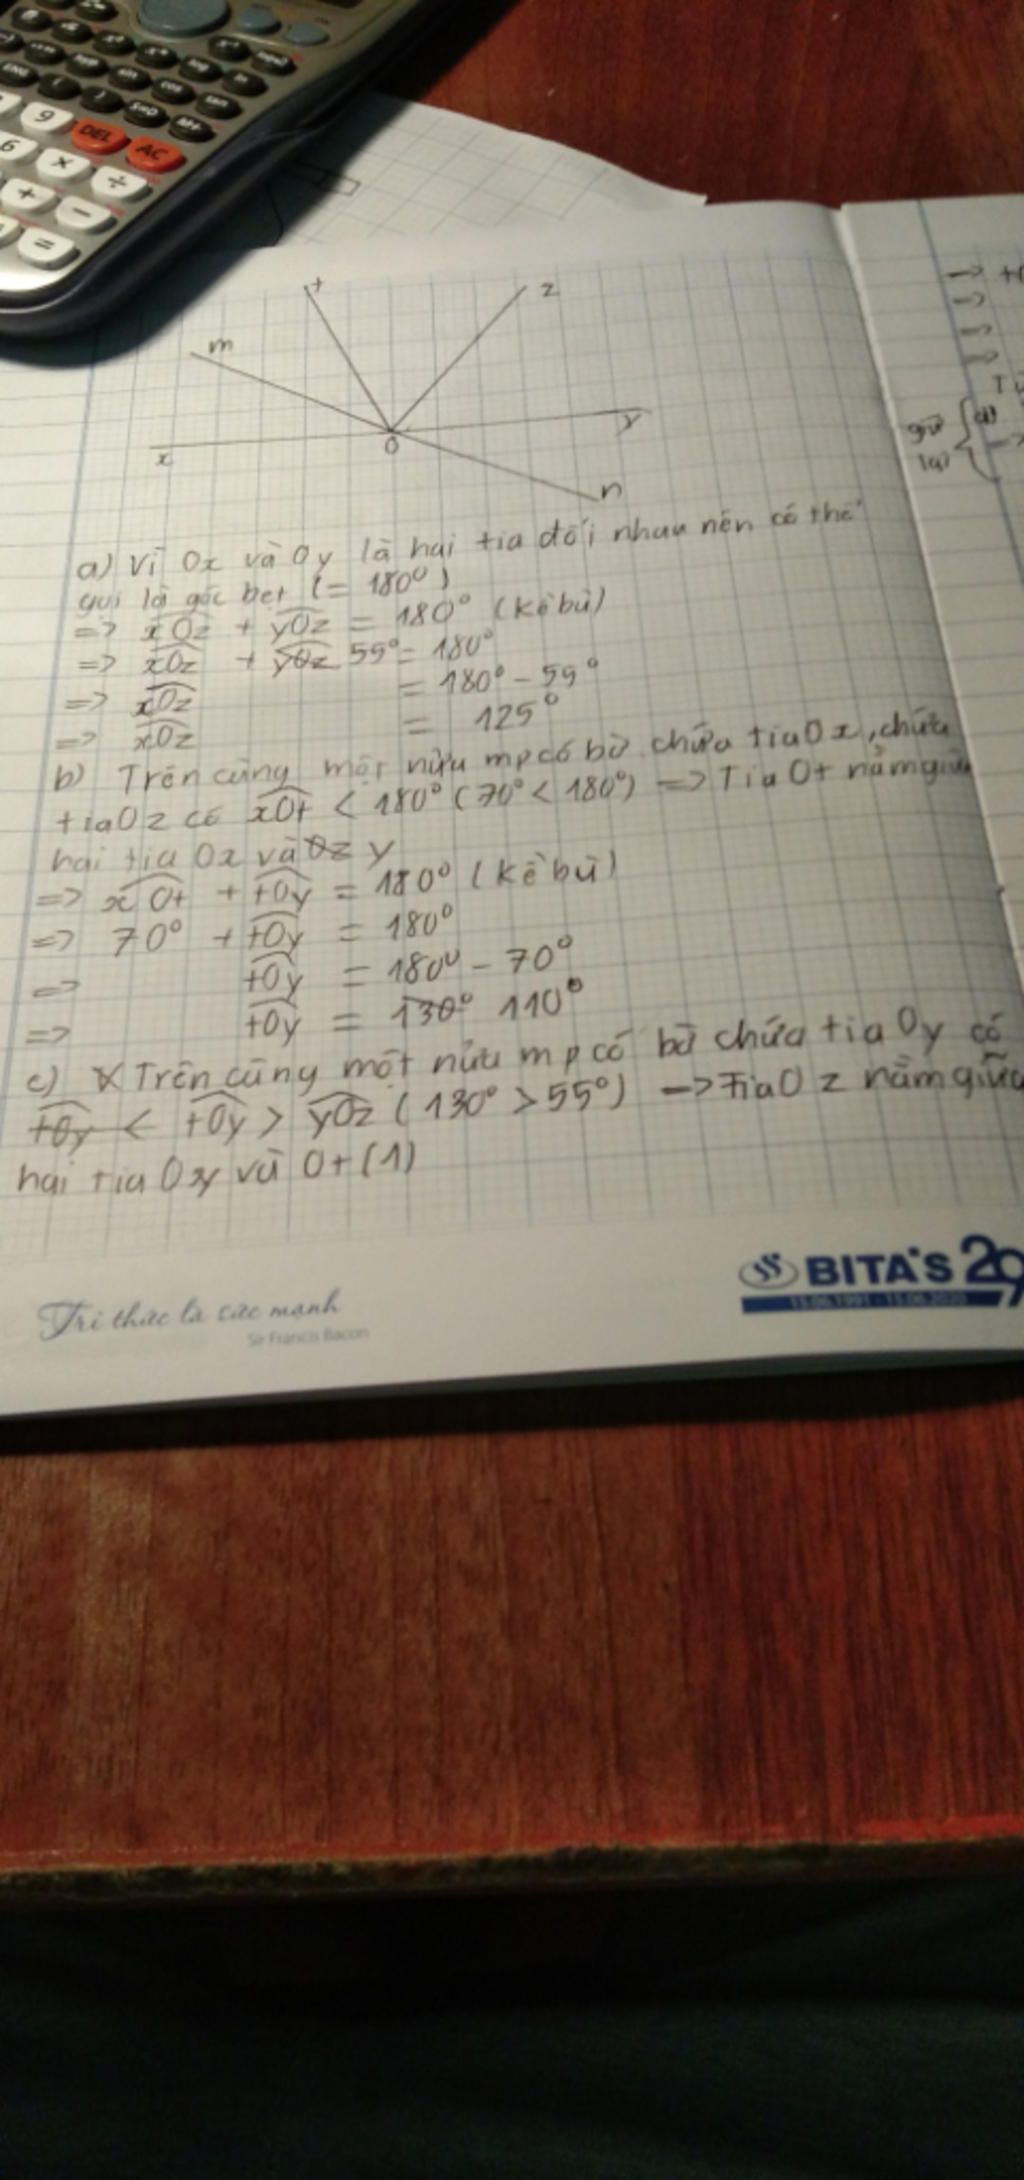 DEL
AC
S⇔D
M+
9
6
×
÷
+
−
=
t
z
m
x
O
y
n
a) Vì Ox và Oy là hai tia đối nhau nên có thể
gọi là góc bẹt (= 180°)
=> xOz + yOz = 180° (kề bù)
=> xOz + yOz 55° = 180°
=> xOz = 180° - 55°
=> xOz = 125°
b) Trên cùng một nửa mp có bờ chứa tia Ox, chứa
tia Oz có xOt < 180° (70° < 180°) => Tia Ot nằm giữa
hai tia Ox và Oz y
=> xOt + tOy = 180° (kề bù)
=> 70° + tOy = 180°
=> tOy = 180° - 70°
=> tOy = 130° 110°
c) Trên cùng một nửa mp có bờ chứa tia Oy có
tOy < tOy > yOz (130° > 55°) -> tia Oz nằm giữa
hai tia Oy và Ot (1)
Tri thức là sức mạnh
Sir Francis Bacon
BITA'S 29